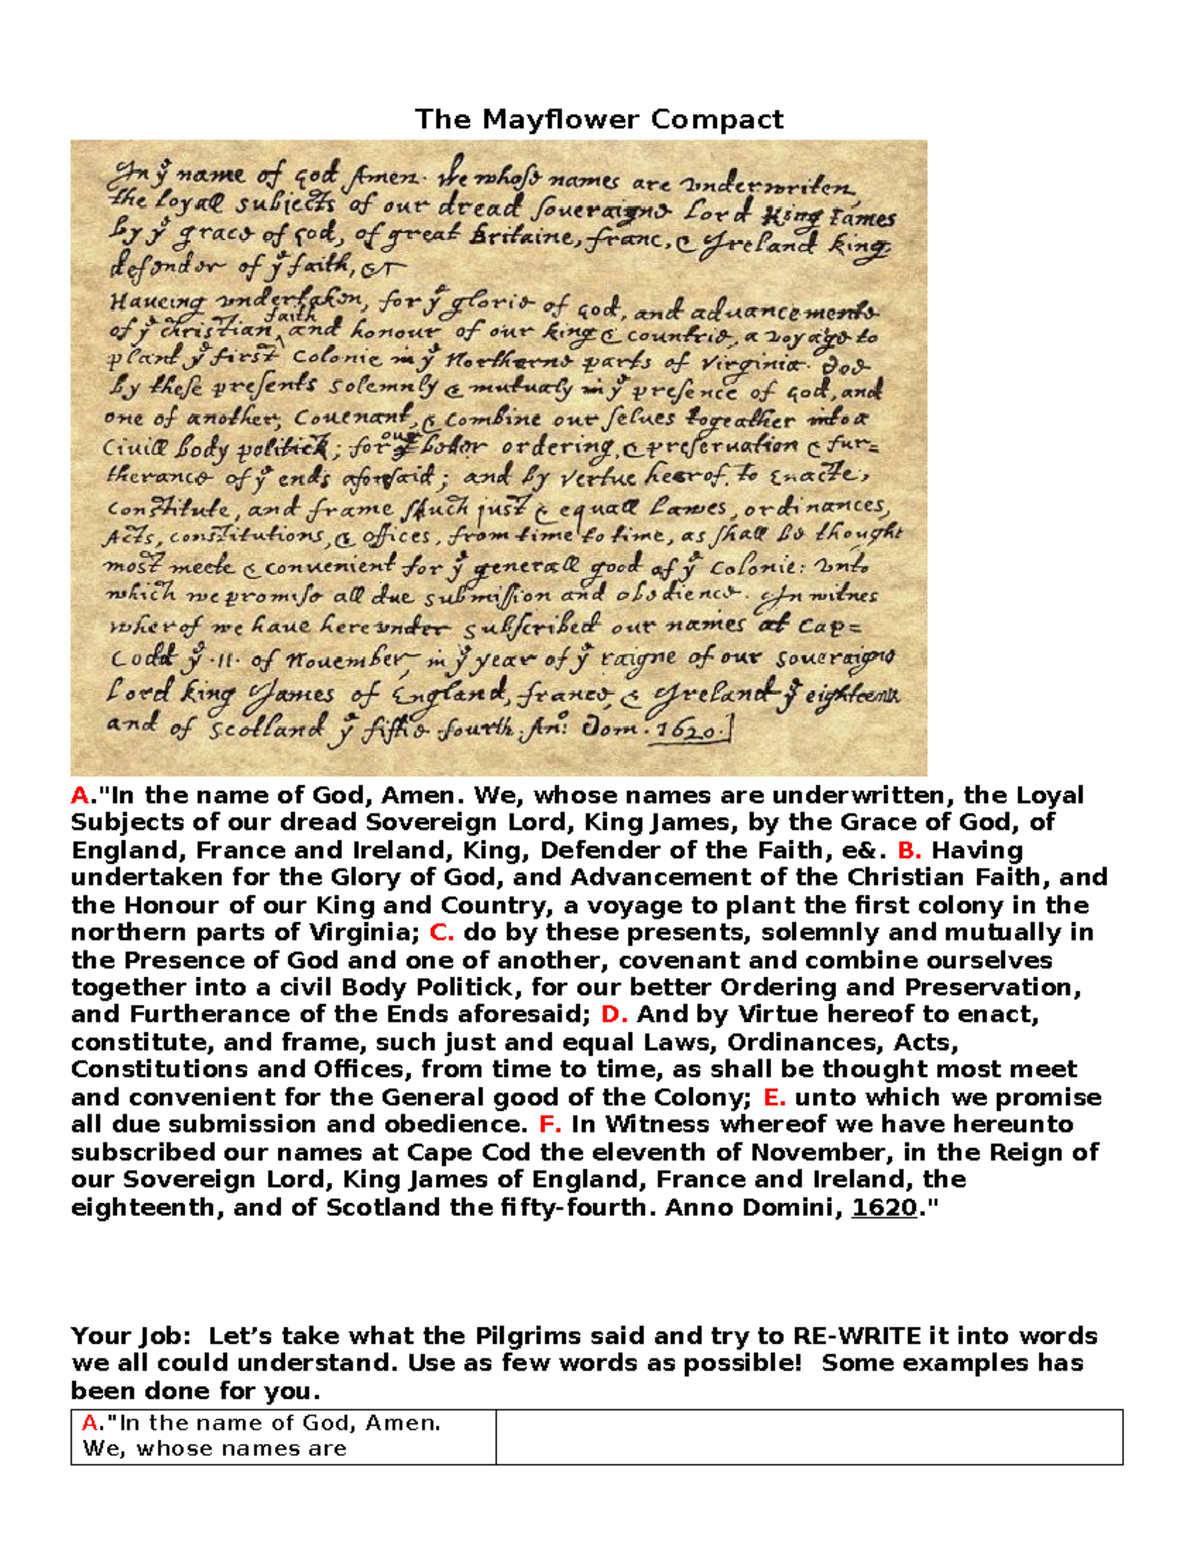 The Mayflower Compact
In yͤ name of god Amen. We whose names are underwriten,
the loyall subjects of our dread soveraigne Lord King James
by yͤ grace of god, of great Britaine, franc, & Ireland king,
defender of yͤ faith, &c
Haveing undertaken, for yͤ glorie of god, and advancemente
of yͤ christian faith and honour of our king & countrie, a voyage to
plant yͤ first colonie in yͤ Northerne parts of Virginia. Doe
by these presents solemnly & mutualy in yͤ presence of god, and
one of another, covenant, & combine our selves togeather into a
civill body politick; for our better ordering, & preservation & fur=
therance of yͤ ends aforesaid; and by vertue hearof, to enacte,
constitute, and frame such just & equall lawes, ordinances,
Acts, constitutions, & offices, from time to time, as shall be thought
most meete & convenient for yͤ generall good of yͤ colonie: unto
which we promise all due submission and obedience. In witnes
wherof we have hereunder subscribed our names at Cap=
Codd yͤ .11. of November, in yͤ year of yͤ raigne of our soveraigne
Lord king James of England, france, & Ireland yͤ eighteenth
and of Scotland yͤ fiftie fourth. Anº: Dom. 1620.]
A."In the name of God, Amen. We, whose names are underwritten, the Loyal
Subjects of our dread Sovereign Lord, King James, by the Grace of God, of
England, France and Ireland, King, Defender of the Faith, e&. B. Having
undertaken for the Glory of God, and Advancement of the Christian Faith, and
the Honour of our King and Country, a voyage to plant the first colony in the
northern parts of Virginia; C. do by these presents, solemnly and mutually in
the Presence of God and one of another, covenant and combine ourselves
together into a civil Body Politick, for our better Ordering and Preservation,
and Furtherance of the Ends aforesaid; D. And by Virtue hereof to enact,
constitute, and frame, such just and equal Laws, Ordinances, Acts,
Constitutions and Offices, from time to time, as shall be thought most meet
and convenient for the General good of the Colony; E. unto which we promise
all due submission and obedience. F. In Witness whereof we have hereunto
subscribed our names at Cape Cod the eleventh of November, in the Reign of
our Sovereign Lord, King James of England, France and Ireland, the
eighteenth, and of Scotland the fifty-fourth. Anno Domini, 1620."
Your Job:  Let’s take what the Pilgrims said and try to RE-WRITE it into words
we all could understand. Use as few words as possible!  Some examples has
been done for you.
A."In the name of God, Amen.
We, whose names are